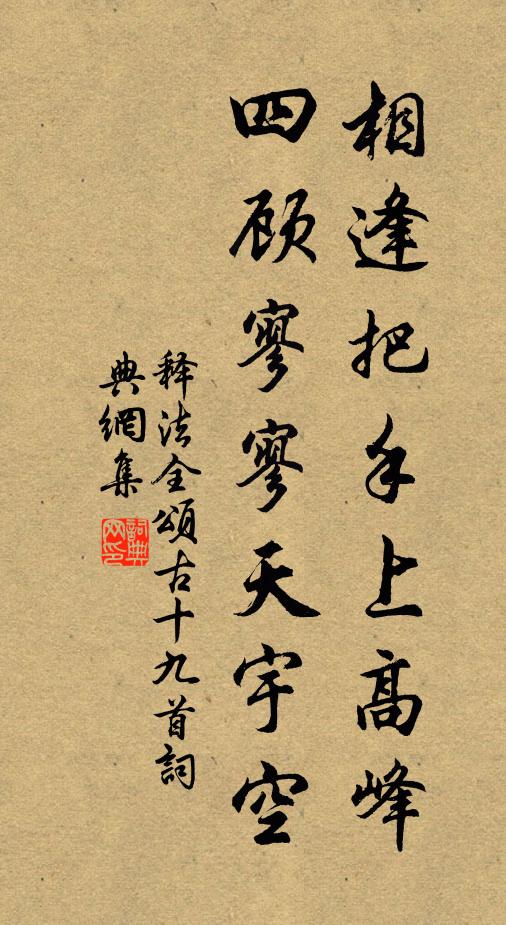 相逢把手上高峰
四顾寥寥天宇空
释法全頌古十九首詞
典網集
詞典网印